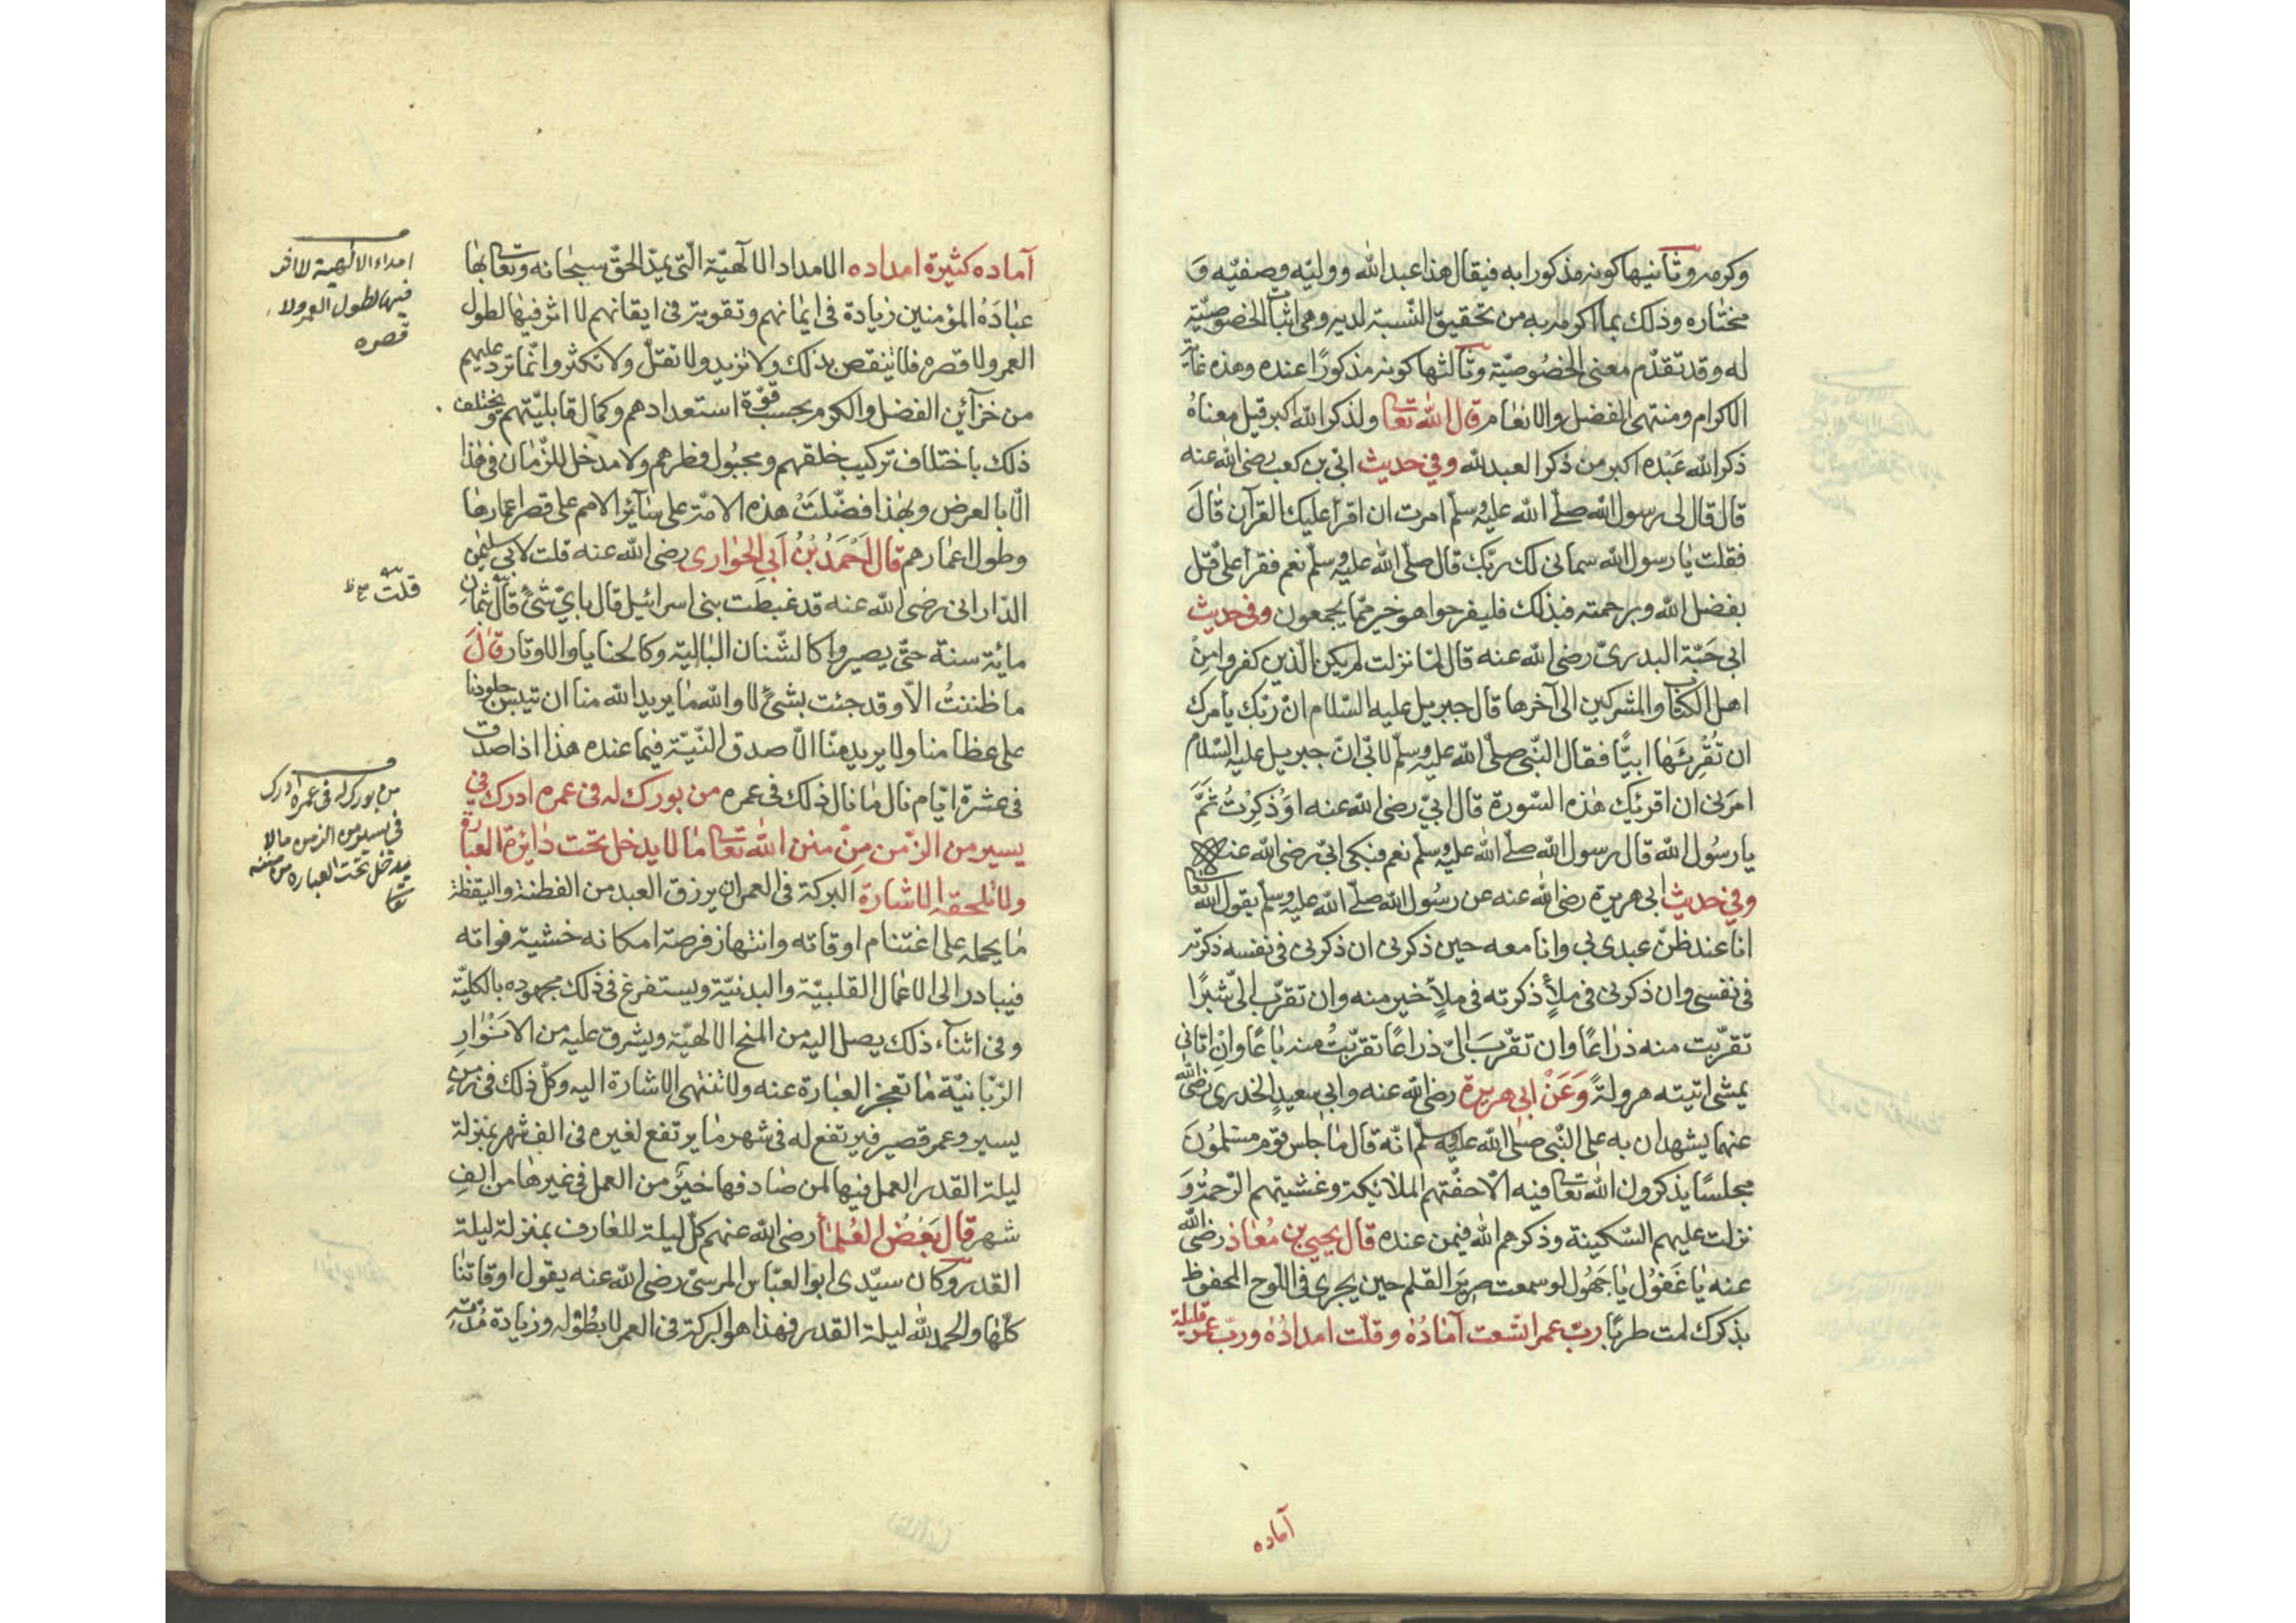 وكرمه وثانيها كونه مذكورا به فيقال هذا عبد الله ووليّه وصفيّه وَ
مختاره وذلك بما اكرمه به من تحقيق النّسبة لديه وهى اثبات الخصوصيّة
له وقد تقدّم معنى الخصُوصيّة وثالثها كونه مذكورًا عنده وهذه غاية
الاكرام ومنتهى الفضل والانعام قال الله تعا ولذكر الله اكبر قيل معناهُ
ذكر الله عَبْده اكبر من ذكر العبد لله وفى حديث ابىّ بن كعب رضى الله عنه
قال قال لى رسول الله صلّى الله عليه وسلّم امرت ان اقرأ عليك القرآن قالَ
فقلت يا رسول الله سمانى لك ربّك قال صلّى الله عليه وسلّم نعم فقرأ علىّ قل
بفضل الله وبرحمته فبذلك فليفرحوا هو خير ممّا يجمعون وفى حديث
ابى حَبّة البدرىّ رضى الله عنه قال لمّا نزلت لم يكن الّذين كفروا مِنْ
اهل الكتاب والمشركين الى آخرها قال جبريل عليه السّلام انّ ربّك يأمرك
ان تُقْرِئَها ابيًّا فقال النّبى صلّى الله عليه وسلّم لابىّ انّ جبريل عليه السّلام
امرَنى ان اقرئك هذه السّورة قال ابىّ رضى الله عنه اوَذُكِرْتُ ثَمَّ
يا رسُول الله قال رسول الله صلّى الله عليه وسلّم نعم فبكى ابىّ رضى الله عنه
وفى حديث ابى هريرة رضى الله عنه عن رسُول الله صلّى الله عليه وسلّم يقول الله تعا
انا عند ظنّ عبدى بى وانا معه حين ذكرنى ان ذكرنى فى نفسه ذكرته
فى نفسى وان ذكرنى فى ملأٍ ذكرته فى ملأٍ خير منه وان تقرّب الىّ شبرًا
تقرّبت منه ذراعًا وان تقرّبَ الىّ ذراعًا تقرّبتُ منه باعًا وانْ اتانى
يمشى اتيته هرولةً وَعَنْ ابى هريرة رضى الله عنه وابى سعيدٍ الخدرى رضى الله
عنهما يشهدان به على النّبى صلى الله عليه وسلّم انّه قال ما جلس قوم مسلمُونَ
مجلسًا يذكرون الله تعا فيه الّا حفّتهم الملائكة وغشيتهم الرّحمة وَ
نزلت عليهم السّكينة وذكرهم الله فيمن عنده قال يحيى بن مُعَاذ رضى الله
عنه يا غَفوُل يا جَهُول لو سمعت صريَر القلم حين يجرى فى اللّوح المحفوظ
بذكرك لمت طربًا ربّ عمر اتّسعت آمادُهُ وقلّت امدادُهُ وربّ عمر قليلة
آماده
آماده كثيرة امداده الامداد الآلهيّة الّتى يمدّ الحقّ سبحانه وتعا بها
عبَادَهُ المؤمنين زيادة فى ايمانهم وتقوية فى ايقانهم لا اثر فيها لطول
العمر ولا قصره فلا ينقص بذلك ولا تزيد ولا تقلّ ولا تكثر وانّما ترد عليهم
من خزآئن الفضل والكرم بحسب قوّة استعدادهم وكمال قابليّتهم ويختلف
ذلك باختلاف تركيب خلقهم ومجبُول فطرهم ولا مدخل للزّمان فى هذا
الّا بالعرض وبهذا فضّلَتْ هذه الامّة على سآئر الامم على قصر اعمارها
وطول اعمارهم قال اَحْمَدُ بْنُ اَبِى الحَوارى رضى الله عنه قلت لابى سليمن
الدّارانى رضى الله عنه قد غبطت بنى اسرائيل قال بايّ شىءٍ قال ثمانِ
مائة سنة حتّى يصيروا كالشّنان البالية وكالحنايا والاوتار قالَ
ما ظننتُ الّا وقد جئت بشىءٍ لا والله ما يريد الله منا ان تيبس جلودنا
على عظامنا ولا يريد منّا الّا صدق النّيّة فيما عنده هذا اذا صدق
فى عشرة ايّام نال ما نال ذلك فى عمره من بورك له فى عمره ادرك فى
يسير من الزّمن مِنْ منن الله تعا ما لا يدخل تحت دائرة العبارة
ولا تلحقه الاشارة البركة فى العمر ان يرزق العبد من الفطنة واليقظة
ما يحمله على اغتنام اوقاته وانتهاز فرصة امكانه خشية فواته
فيبادر الى الاعمال القلبيّة والبدنيّة ويستفرغ فى ذلك مجهوده بالكليّة
وفى اثنآء ذلك يصل اليه من المنح الالهيّة ويشرق عليه من الانْوَارِ
الرّبّانيّة ما تعجز العبارة عنه ولا تنتهى الاشارة اليه وكلّ ذلك فى زمنٍ
يسير وعمر قصير فيرتفع له فى شهر ما يرتفع لغيره فى الف شهر بمنزلة
ليلة القدر العمل فيها لمن صادفها خيرٌ من العمل فى غيرها من الفِ
شهر قال بَعْضُ العُلمآء رضى الله عنهم كلّ ليلة للعارف بمنزلة ليلة
القدر وكان سيّدى ابو العبّاس المرسىّ رضى الله عنه يقول اوقاتنا
كلّها والحمد لله ليلة القدر فهذا هو البركة فى العمر لا بطُوله وزيادة مُدّته
امداد الالهية لا اثر
فيها لطول العمر ولا
قصره
قلت
من بورك له فى عمره ادرك
فى يسير من الزمن ما لا
يدخل تحت العبارة من مننه
تعا